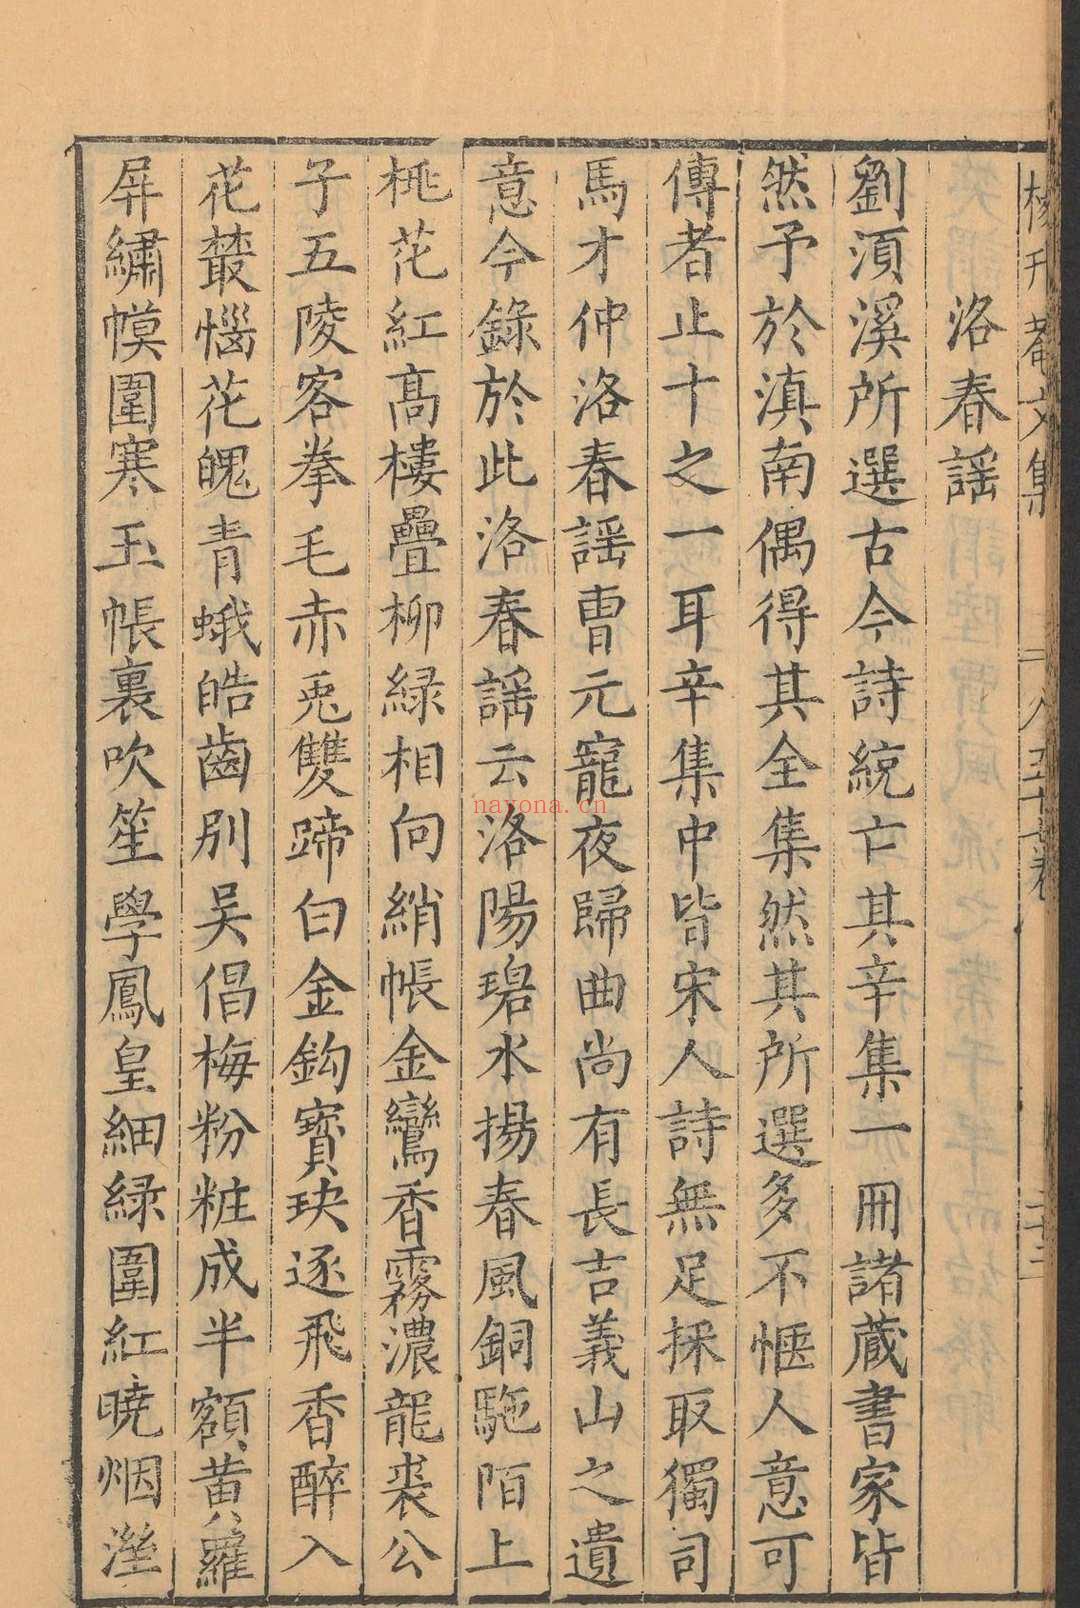 洛春謡
劉湏溪所選古今詩統亡其辛集一冊諸蔵書家皆
然予於滇南偶得其全集然其所選多不愜人意可
傳者止十之一耳辛集中皆宋人詩無足採取獨司
馬才仲洛春謡曹元寵夜歸曲尚有長吉義山之遺
意今錄於此洛春謡云洛陽碧水揚春風銅駞陌上
桃花紅髙樓疊柳綠相向綃帳金鸞香霧濃龍裘公
子五陵客拳毛赤兎雙蹄白金鈎寳玦逐飛香醉入
花叢惱花魄青蛾皓齒別吴倡梅粉粧成半額黄羅
屏繡幙圍寒玉帳裏吹笙學鳳皇細綠圍紅曉烟溼
nayona.cn